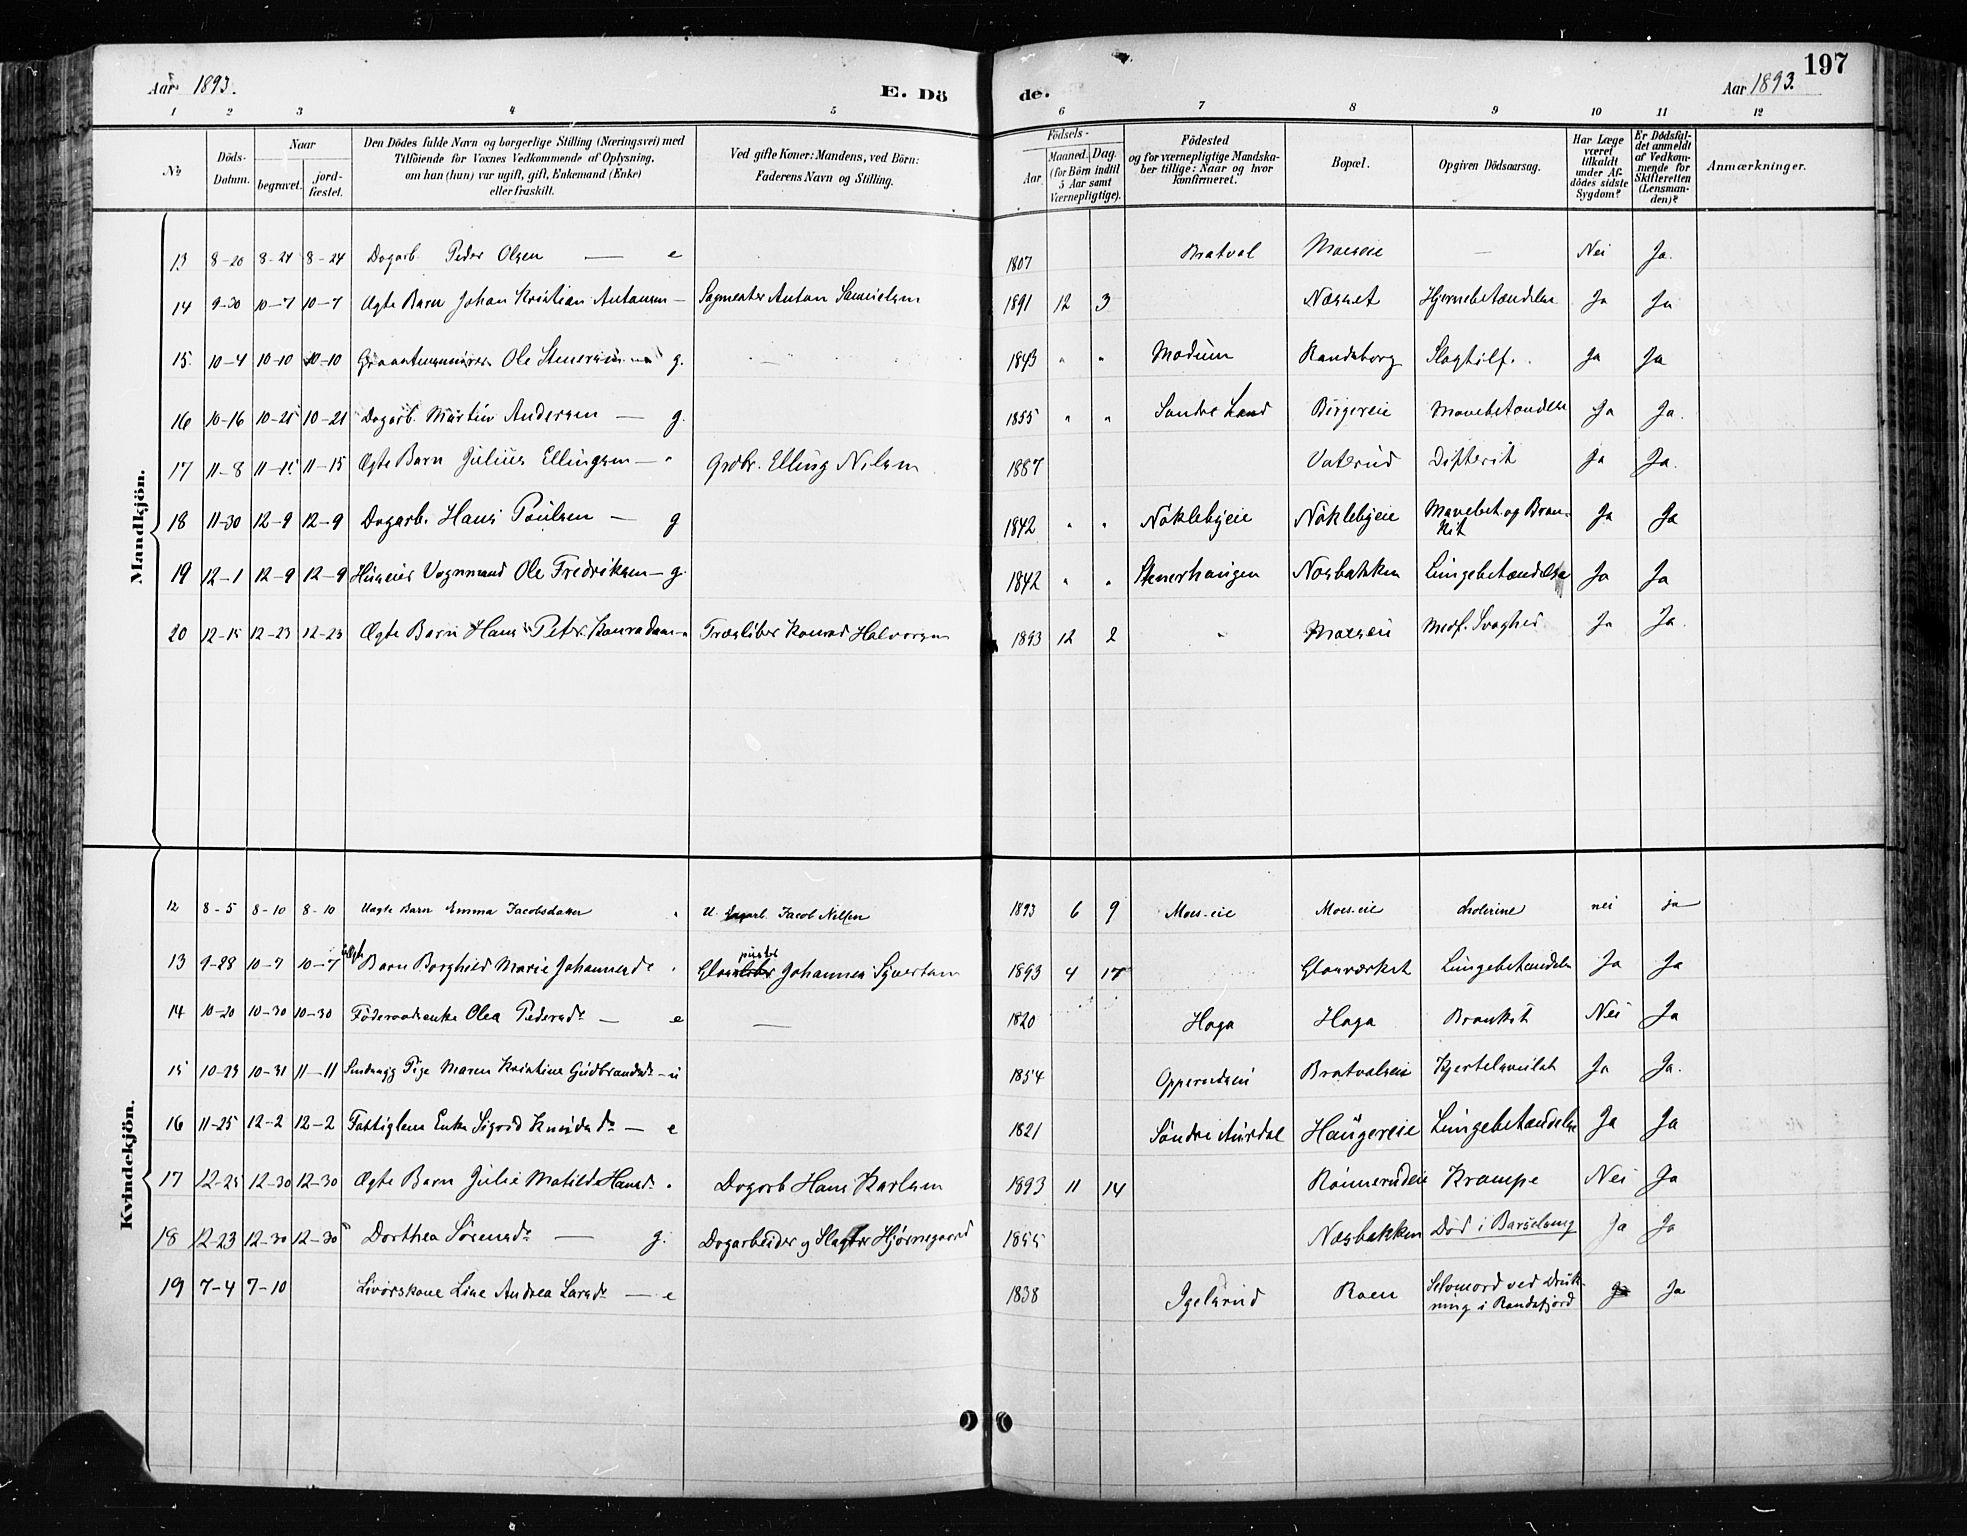 Aar 1893. E. Dö de. Aar 1893. 197
1 2 3 4 5 6 7 8 9 10 11 12
№ Döds-Datum. Naar begravet. jordfæstet. Den Dödes fulde Navn og borgerlige Stilling (Næringsvei) med Tilföiende for Voxnes Vedkommende af Oplysning, om han (hun) var ugift, gift, Enkemand (Enke) eller fraskilt. Ved gifte Koner: Mandens, ved Börn: Faderens Navn og Stilling. Födsels- Aar Maaned. Dag. (for Börn indtil 5 Aar samt Værnepligtige). Födested og for værnepligtige Mandskaber tillige: Naar og hvor Konfirmeret. Bopæl. Opgiven Dödsaarsag. Har Læge været tilkaldt under Afdödes sidste Sygdom? Er Dödsfaldet anmeldt af Vedkommende for Skifteretten (Lensmanden)? Anmærkninger.
Mandkjön.
13 8-20 8-24 8-24 Dagarb. Peder Olsen — e 1807 Bratval Moeseie — Nei Ja.
14 9-30 10-7 10-7 Ægte Barn Johan Kristian Antonsen — Sagmester Anton Samuelsen 1891 12 3 Næsset Hjernebetændelse Ja Ja
15. 10-4 10-10 10-10 Ole Stenersen g. — 1843 " " Modum Randsborg Slagtilf. Ja Ja
16 10-16 10-21 10-21 Dagarb. Martin Andersen — g. 1855 " " Søndre Land Børgereie Mavebetændelse Ja Ja.
17 11-8 11-15 11-15 Ægte Barn Julius Ellingsen — " Grdbr. Elling Nilsen 1887 Vaterud Difterit Ja Ja.
18 11-30 12-9 12-9 Dagarb. Hans Poulsen — g 1842 " " Nøklebyeie Nøklebyeie Mavebet. og Bronkit Ja Ja
19 12-1 12-9 12-9 Huseier Vognmand Ole Fredriksen — g. 1842 " " Stenerhaugen Næsbakken Lungebetændelse Ja Ja
20 12-15 12-23 12-23 Ægte Barn Hans Peter Konradsen — Træsliber Konrad Halvorsen 1893 12 2 " Moeseie Medf. Svaghed Ja Ja.
Kvindekjön.
12 8-5 8-10 8-10 Uægte Barn Emma Jacobsdatter " U. Dagarb. Jacob Nilsen 1893 6 9 Moes-eie Moes-eie cholerine nei ja
13 9-28 10-7 10-7 uægte Barn Borghild Marie Johannesd. " Glassliber puster Johannes Syvertsen 1893 4 17 Glasværket Lungebetændelse Ja Ja
14 10-20 10-30 10-30 Føderaadsenke Olea Pedersdr — e — 1820 Haga Haga Bronkit Nei Ja
15 10-23 10-31 11-11 Sindssyg Pige Maren Kristine Gudbrandsdr — u 1854 Opperudseie Bratvalseie Kjertelsvulst Ja Ja.
16 11-25 12-2 12-2 Fattiglem Enke Sigrid Knudsdr — e 1821 Søndre Aurdal Haugereie Lungebetændelse Ja Ja
17 12-25 12-30 12-30 Ægte Barn Julie Matilde Hansdr " Dagarb Hans Karlsen 1893 11 14 Rønnerudeie Krampe Nei Ja
18 12-23 12-30 12-30 Dorthea Sørensdr — g. Dagarbeider og Slagter Hjørnegaard 1855 Næsbakken Død i Barselseng Ja Ja
19 7-4 7-10 Livørskone Line Andrea Larsdr — e 1838 Igelsrud Roen Selvmord ved Drukning i Randsfjord Ja Ja